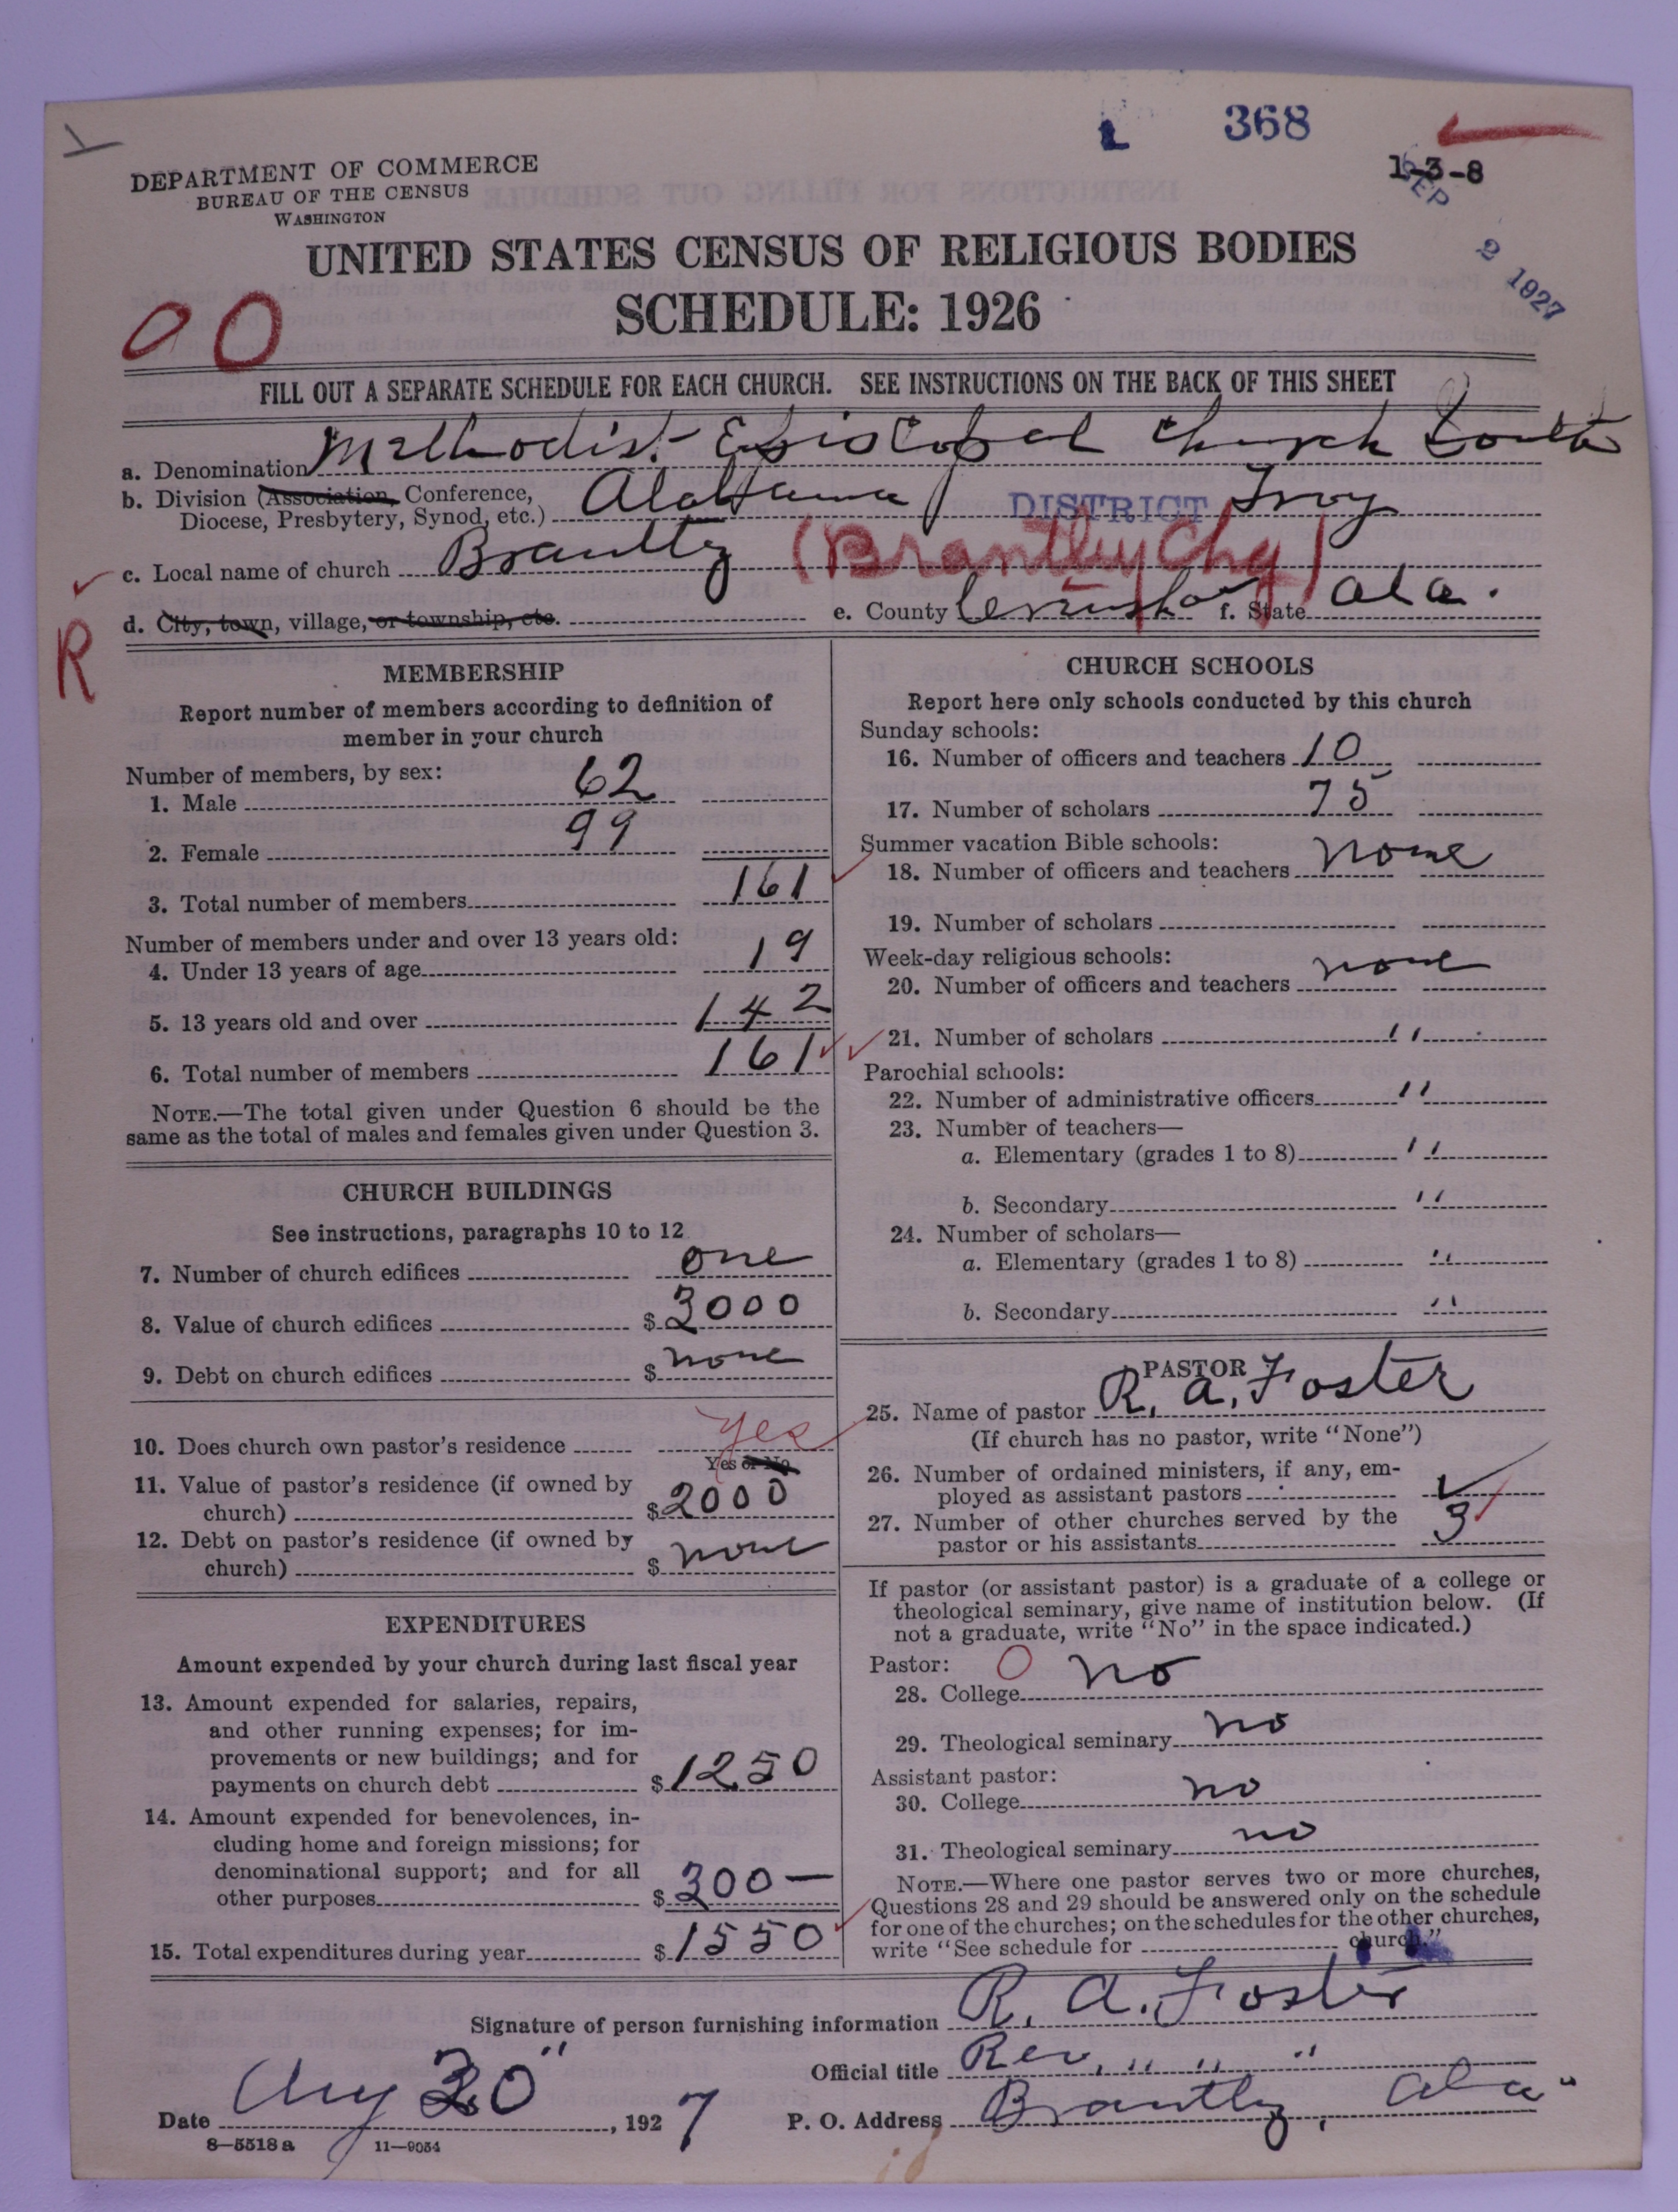 368
1-3-8
SEP 2 1927
DEPARTMENT OF COMMERCE
BUREAU OF THE CENSUS
WASHINGTON
UNITED STATES CENSUS OF RELIGIOUS BODIES
SCHEDULE: 1926
FILL OUT A SEPARATE SCHEDULE FOR EACH CHURCH. SEE INSTRUCTIONS ON THE BACK OF THIS SHEET
a. Denomination Methodist Episcopal Church South
b. Division (Association, Conference, Diocese, Presbytery, Synod, etc.) Alabama DISTRICT Troy
c. Local name of church Brantley (Brantley Chg)
d. City, town, village, or township, etc. e. County f. State Ala.
R
MEMBERSHIP
Report number of members according to definition of
member in your church
Number of members, by sex:
1. Male 62
2. Female 99
3. Total number of members 161
Number of members under and over 13 years old:
4. Under 13 years of age 19
5. 13 years old and over 142
6. Total number of members 161
NOTE.—The total given under Question 6 should be the
same as the total of males and females given under Question 3.
CHURCH BUILDINGS
See instructions, paragraphs 10 to 12
7. Number of church edifices one
8. Value of church edifices $ 3000
9. Debt on church edifices $ none
10. Does church own pastor's residence yes
Yes or No
11. Value of pastor's residence (if owned by
church) $ 2000
12. Debt on pastor's residence (if owned by
church) $ none
EXPENDITURES
Amount expended by your church during last fiscal year
13. Amount expended for salaries, repairs,
and other running expenses; for im-
provements or new buildings; and for
payments on church debt $ 1250
14. Amount expended for benevolences, in-
cluding home and foreign missions; for
denominational support; and for all
other purposes $ 300—
15. Total expenditures during year $ 1550
CHURCH SCHOOLS
Report here only schools conducted by this church
Sunday schools:
16. Number of officers and teachers 10
17. Number of scholars 75
Summer vacation Bible schools:
18. Number of officers and teachers none
19. Number of scholars
Week-day religious schools:
20. Number of officers and teachers none
21. Number of scholars "
Parochial schools:
22. Number of administrative officers "
23. Number of teachers—
a. Elementary (grades 1 to 8) "
b. Secondary "
24. Number of scholars—
a. Elementary (grades 1 to 8) "
b. Secondary "
PASTOR
25. Name of pastor R. A. Foster
(If church has no pastor, write "None")
26. Number of ordained ministers, if any, em-
ployed as assistant pastors
27. Number of other churches served by the
pastor or his assistants 3
If pastor (or assistant pastor) is a graduate of a college or
theological seminary, give name of institution below. (If
not a graduate, write "No" in the space indicated.)
Pastor:
28. College O no
29. Theological seminary no
Assistant pastor:
30. College no
31. Theological seminary no
NOTE.—Where one pastor serves two or more churches,
Questions 28 and 29 should be answered only on the schedule
for one of the churches; on the schedules for the other churches,
write "See schedule for church."
Signature of person furnishing information R. A. Foster
Official title Rev. " " "
Date Aug 30", 1927 P. O. Address Brantley, Ala"
8-5518a 11-9054